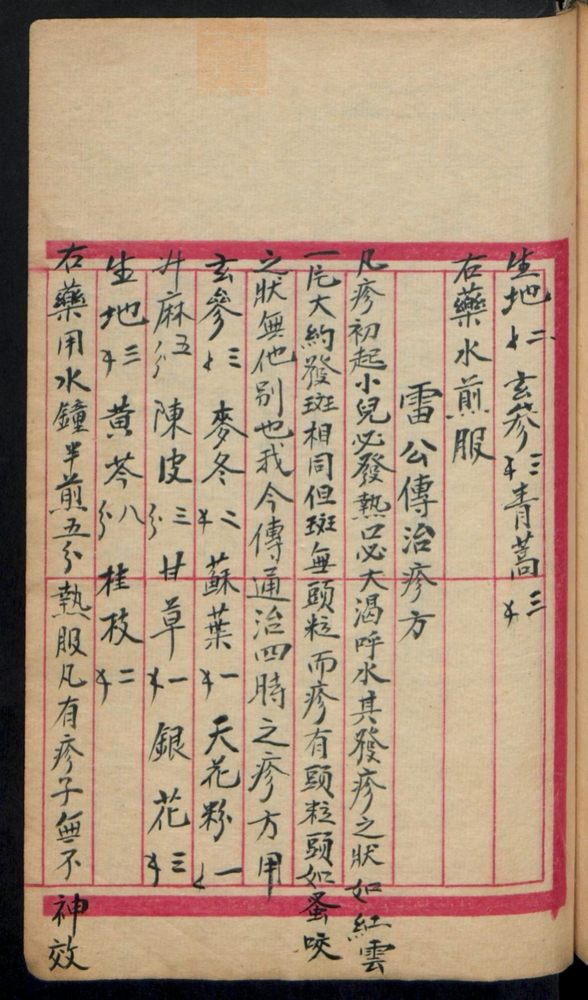 生地二钅 玄參三钅 青蒿三钅
右藥水煎服
雷公傳治疹方
凡疹初起小兒必發熱口必大渴呼水其發疹之狀如紅雲
一片大約發斑相同但斑無頭粒而疹有頭粒頭如蚤咬
之狀無他別也我今傳通治四時之疹方用
玄參三钅 麥冬二钅 蘇葉一钅 天花粉一钅
升麻五分 陳皮三分 甘草一钅 銀花三钅
生地三钅 黃芩八分 桂枝二钅
右藥用水鐘半煎五分熱服凡有疹子無不神效